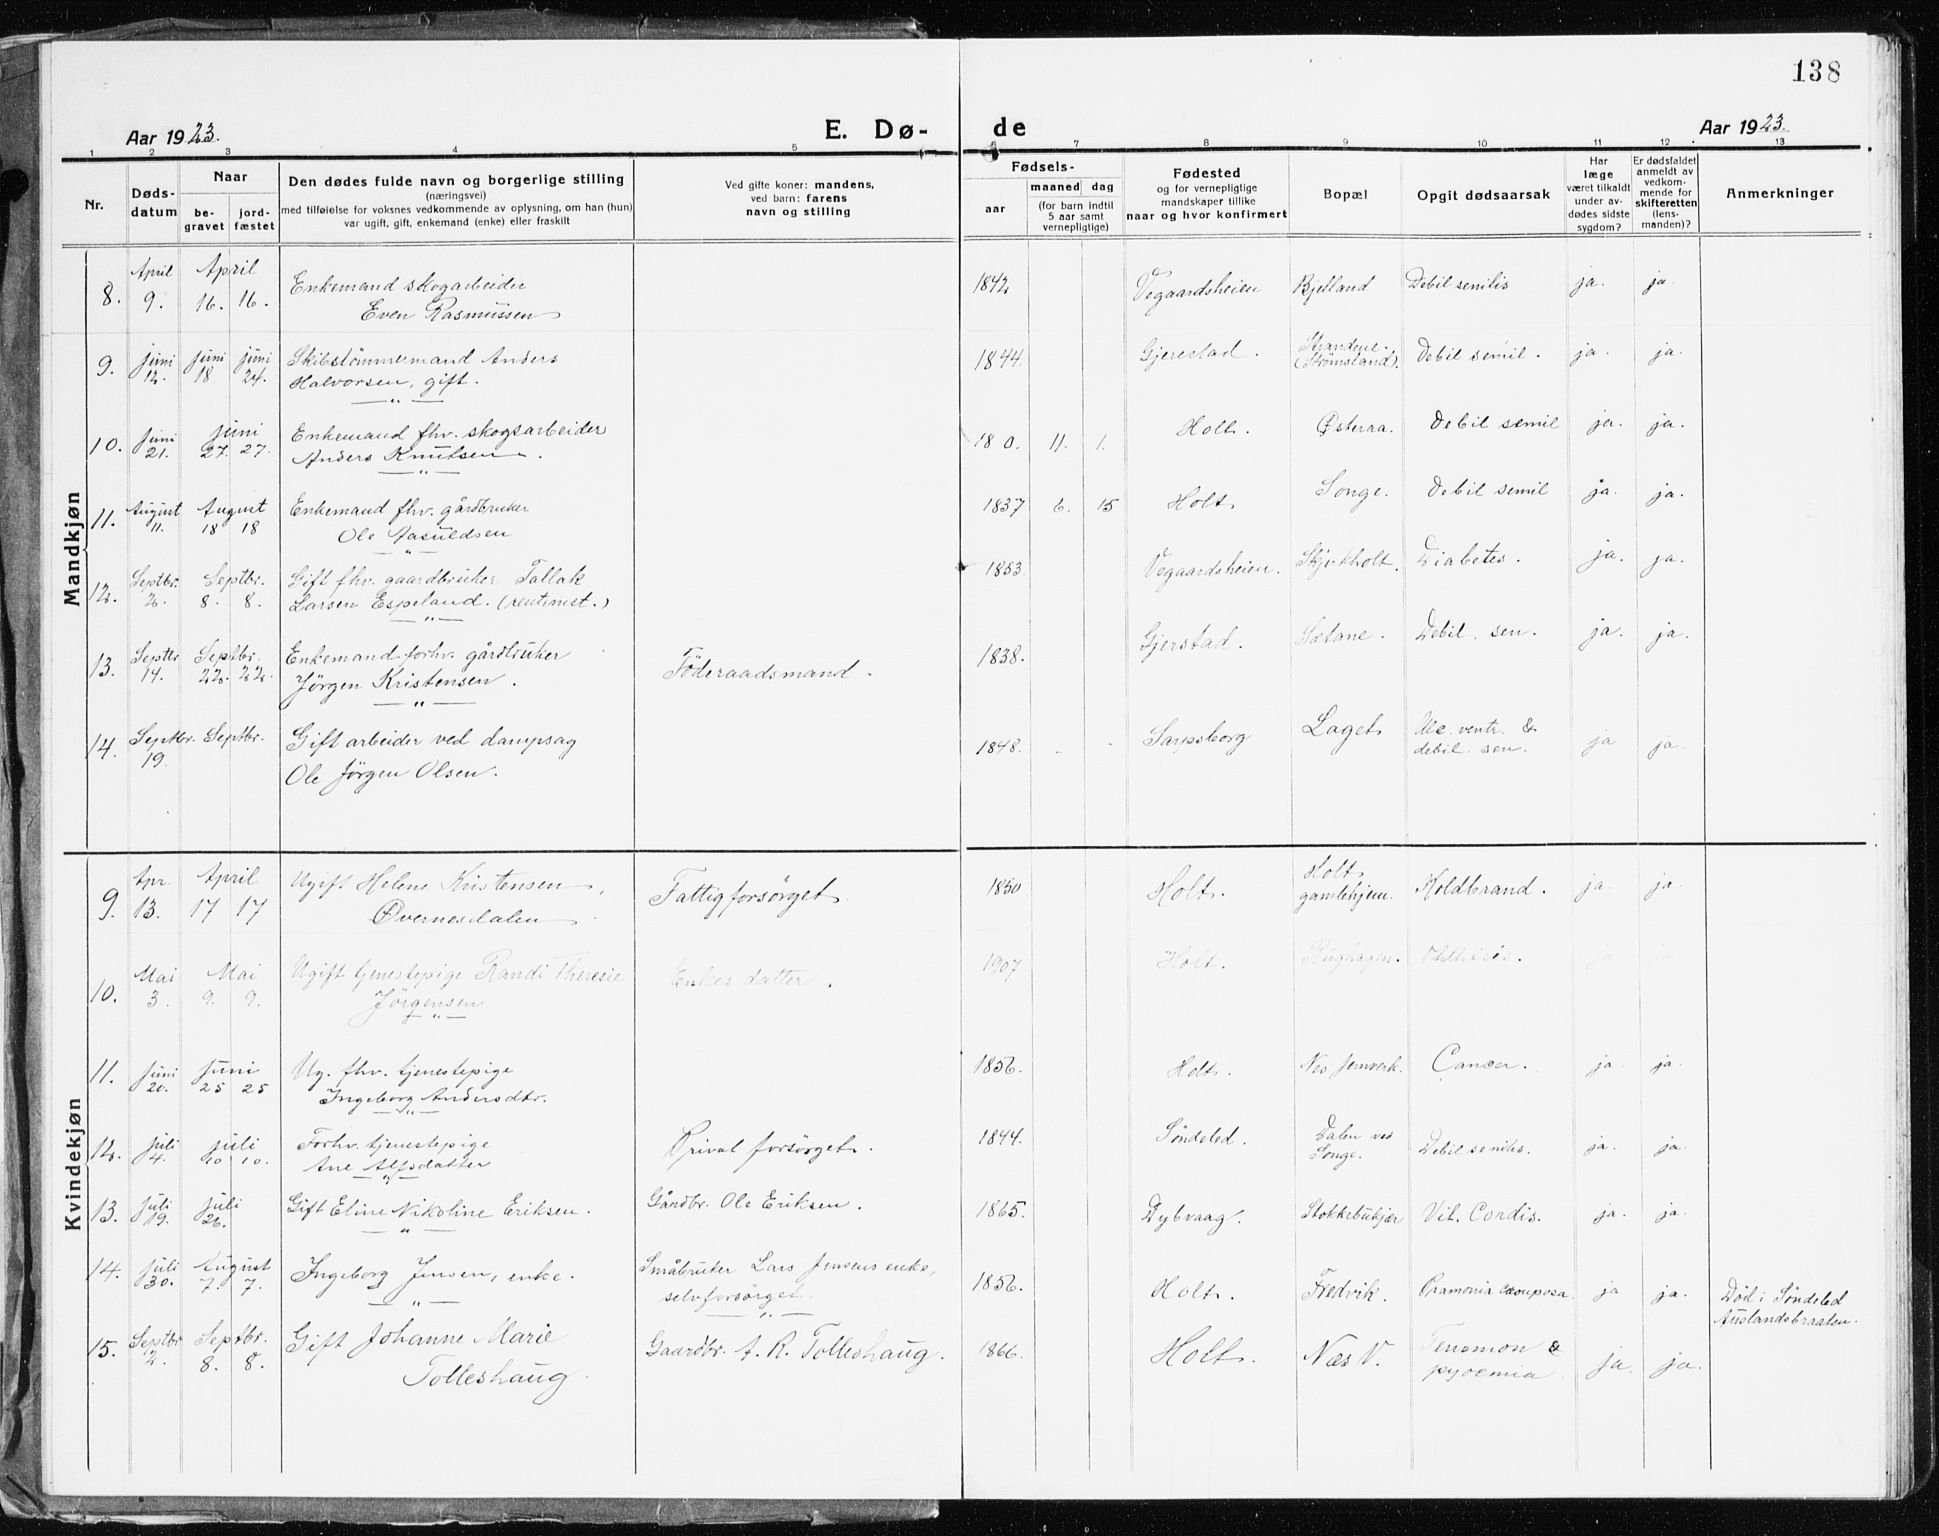 138
Aar 1923.
E. Dø-
de
Aar 1923.
1 2 3 4 5 6 7 8 9 10 11 12 13
Nr.
Døds-
datum
Naar
be-
gravet
jord-
fæstet
Den dødes fulde navn og borgerlige stilling
(næringsvei)
med tilføielse for voksnes vedkommende av oplysning, om han (hun)
var ugift, gift, enkemand (enke) eller fraskilt
Ved gifte koner: mandens,
ved barn: farens
navn og stilling
Fødsels-
aar
maaned dag
(for barn indtil
5 aar samt
vernepligtige)
Fødested
og for vernepligtige
mandskaper tillike
naar og hvor konfirmert
Bopæl
Opgit dødsaarsak
Har
læge
været tilkaldt
under av-
dødes sidste
sygdom?
Er dødsfaldet
anmeldt av
vedkom-
mende for
skifteretten
(lens-
manden)?
Anmerkninger
Mandkjøn
April April
8. 9. 16. 16. Enkemand skogarbeider
Even Rasmussen
1842 Vegaardsheien Bjelland Debil senilis ja. ja.
9. Juni 12. Juni 18 Juni 24. Skibstømmermand Anders
Halvorsen, gift.
1844. Gjerestad. Strandene.
(Strømsland). Debil senil. ja. ja.
10. Juni 21. Juni 27. 27. Enkemand fhv. skogsarbeider
Anders Knutsen.
18 0. 11. 1. Holt. Østeraa. Debil senil ja. ja.
11. August 11. August 18 18 Enkemand fhv. gårdbruker
Ole Aasuldsen
1837 6. 15 Holt. Songe. Debil senil ja. ja.
12. Septbr. 2. Septbr. 8. 8. Gift fhv. gaardbruker Tallak
Larsen Espeland.
1853 Vegaardsheien. Skjerkholt. Diabetes. ja. ja.
13. Septbr 14. Septbr. 22. 22. Enkemand forhv. gårdbruker
Jørgen Kristensen.
Föderaadsmand.
1838. Gjerstad. Sætane. Debil. sen. ja. ja.
14. Septbr. 19. Septbr. Gift arbeider ved dampsag
Ole Jørgen Olsen.
1848. Sarpsborg Laget Ulc. ventr. &
debil. sen. ja ja.
Kvindekjøn
9. Apr. 13. April 17 17 Ugift Helene Kristensen,
Øvernesdalen
Fattigforsørget.
1850 Holt. Holt
gamlehjem. Koldbrand. ja. ja.
10. Mai 3. Mai 9. 9. Ugift tjenestepige Randi Theresie
Jørgensen
Enkes datter.
1907 Holt. Rughagen. ja ja.
11. Juni 20. Juni 25 25 Ug. fhv. tjenestepige
Ingeborg Andersdtr.
1856. Holt. Nes Jernverk. Cancer. ja. ja.
12. Juli 4. Juli 10 10. Forhv. tjenestepige
Ane Alfsdatter
Privat forsørget.
1844. Søndeled. Dalen ved
Songe. Debil senilis. ja. ja.
13. Juli 19. Juli 26. Gift Eline Nikoline Eriksen.
Gårdbr. Ole Eriksen.
1865. Dybvaag. Vit. Cordis. ja. ja.
14. Juli 30. August 7. 7. Ingeborg Jensen, enke.
Småbruker Lars Jensens enke,
selvforsørget.
1856. Holt. Fredvik. ja ja. Død i Søndeled
Auslandsbraaten.
15. Septbr 2. Septbr. 8. 8. Gift Johanne Marie
Tolleshaug
Gaardbr. A. R. Tolleshaug.
1866. Holt. Næs V. &
pyoemia ja. ja.